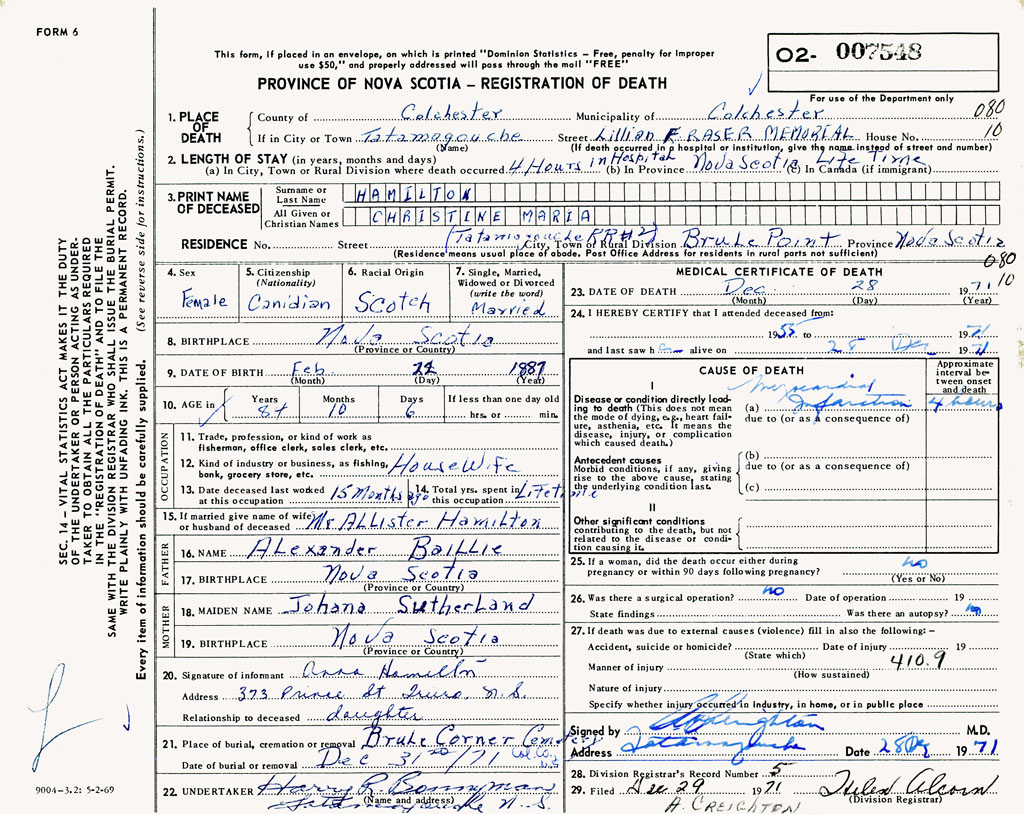 FORM 6
This form, if placed in an envelope, on which is printed "Dominion Statistics – Free, penalty for improper
use $50," and properly addressed will pass through the mail "FREE"
O2- 007548
PROVINCE OF NOVA SCOTIA – REGISTRATION OF DEATH
For use of the Department only
1. PLACE OF DEATH
County of Colchester Municipality of Colchester 080
If in City or Town Tatamagouche Street Lillian FRASER MEMOREAL House No. 10
(Name) (If death occurred in a hospital or institution, give the name instead of street and number)
2. LENGTH OF STAY (in years, months and days)
(a) In City, Town or Rural Division where death occurred 4 Hours in Hospital (b) In Province Nova Scotia (c) In Canada (if immigrant) Life Time
3. PRINT NAME OF DECEASED
Surname or Last Name HAMILTON
All Given or Christian Names CHRISTINE MARIA
RESIDENCE No. Street (Tatamagouche RR#2) City, Town or Rural Division Brule Point Province Nova Scotia
(Residence means usual place of abode. Post Office Address for residents in rural parts not sufficient)
080
10
4. Sex
Female
5. Citizenship
(Nationality)
Canidian
6. Racial Origin
Scotch
7. Single, Married,
Widowed or Divorced
(write the word)
Married
8. BIRTHPLACE Nova Scotia
(Province or Country)
9. DATE OF BIRTH Feb 22 1887
(Month) (Day) (Year)
10. AGE in
Years Months Days If less than one day old
84 10 6 hrs. or min.
OCCUPATION
11. Trade, profession, or kind of work as
fisherman, office clerk, sales clerk, etc.
12. Kind of industry or business, as fishing, HouseWife
bank, grocery store, etc.
13. Date deceased last worked 15 Months ago
at this occupation
14. Total yrs. spent in LiFetime
this occupation
15. If married give name of wife Mr ALLister Hamilton
or husband of deceased
FATHER
16. NAME Alexander Baillie
17. BIRTHPLACE Nova Scotia
(Province or Country)
MOTHER
18. MAIDEN NAME Johana Sutherland
19. BIRTHPLACE Nova Scotia
(Province or Country)
20. Signature of informant Anna Hamilton
Address 373 Prince St Truro, N.S.
Relationship to deceased daughter
21. Place of burial, cremation or removal Brule Corner Cemetery
Date of burial or removal Dec 31 /71 Col. Co. N.S.
22. UNDERTAKER Harry R. Bonnyman
(Name and address)
Tatamagouche N.S.
MEDICAL CERTIFICATE OF DEATH
23. DATE OF DEATH Dec. 28 1971
(Month) (Day) (Year)
24. I HEREBY CERTIFY that I attended deceased from:
1955 to 1971
and last saw h er alive on 28 Dec 1971
CAUSE OF DEATH
Approximate interval between onset and death
I
Disease or condition directly leading to death (This does not mean the mode of dying, e.g., heart failure, asthenia, etc. It means the disease, injury, or complication which caused death.)
(a) Myocardial Infarction 4 hours
due to (or as a consequence of)
Antecedent causes
Morbid conditions, if any, giving rise to the above cause, stating the underlying condition last.
(b)
due to (or as a consequence of)
(c)
II
Other significant conditions
contributing to the death, but not related to the disease or condition causing it.
25. If a woman, did the death occur either during
pregnancy or within 90 days following pregnancy? no
(Yes or No)
26. Was there a surgical operation? no Date of operation 19
State findings Was there an autopsy? no
27. If death was due to external causes (violence) fill in also the following: –
Accident, suicide or homicide? Date of injury 19
(State which)
Manner of injury 410.9
(How sustained)
Nature of injury
Specify whether injury occurred in Industry, in home, or in public place
Signed by M.D.
Address Tatamagouche Date 28 Dec 1971
28. Division Registrar's Record Number 5
29. Filed Dec 29 1971 Helen Alcorn
(Division Registrar)
A. CREIGHTON
SEC. 14 – VITAL STATISTICS ACT MAKES IT THE DUTY
OF THE UNDERTAKER OR PERSON ACTING AS UNDER-
TAKER TO OBTAIN ALL THE PARTICULARS REQUIRED
IN THE "REGISTRATION OF DEATH" AND TO FILE THE
SAME WITH THE DIVISION REGISTRAR WHO SHALL ISSUE THE BURIAL PERMIT.
WRITE PLAINLY WITH UNFADING INK. THIS IS A PERMANENT RECORD.
Every item of information should be carefully supplied. (See reverse side for instructions.)
9004-3.2: 5-2-69